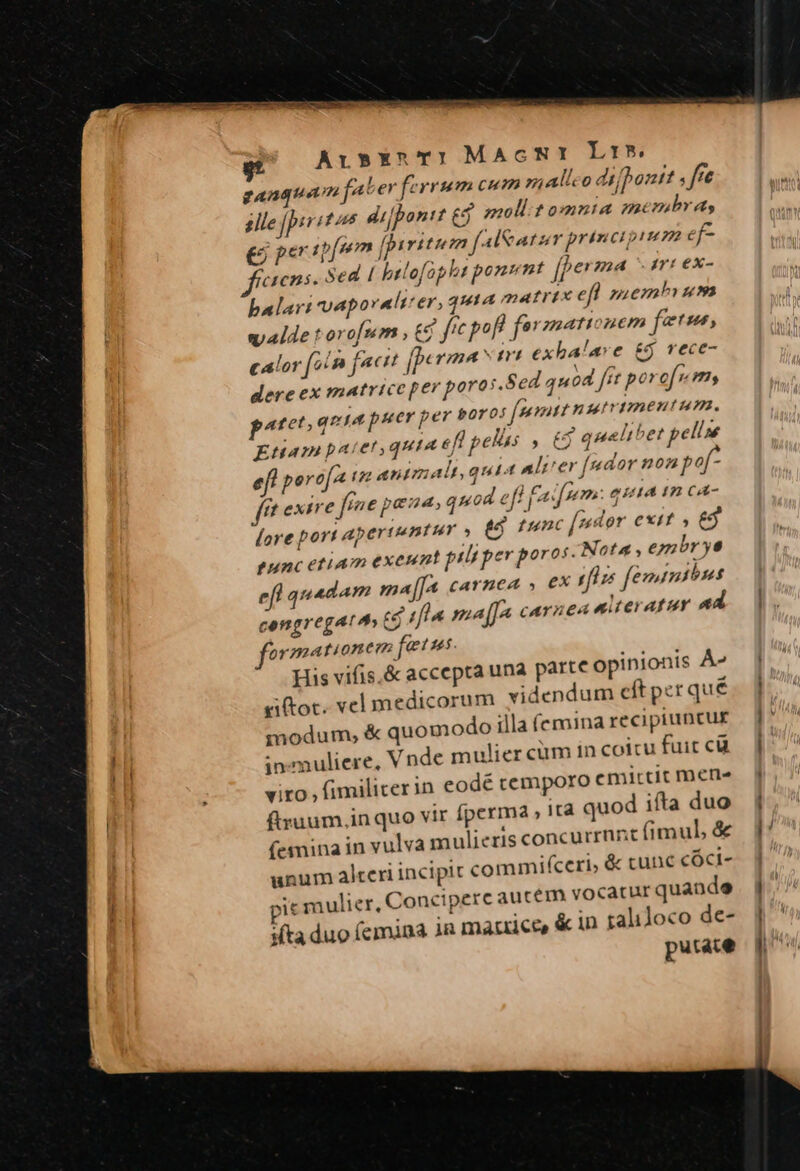 ALBERTI MAGNI LIB.
tanquam faber ferrum cum malleo disponit, sic
ille spiritus disponit & mollit omnia membra,
& per ipsum spiritum salvatur principium ef-
ficiens. Sed philosophi ponunt sperma viri ex-
halari vaporaliter, quia matrix est membrum
valde porosum, & sic post formationem fœtus,
calor solis facit sperma viri exhalare & rece-
dere ex matrice per poros. Sed quòd sit porosum,
patet, quia puer per poros sumit nutrimentum.
Etiam patet, quia est pellis, & quælibet pellis
est porosa in animali, quia aliter sudor non pos-
sit exire sine pœna, quod est falsum: quia in ca-
lore pori aperiuntur, & tunc sudor exit, &
tunc etiam exeunt pili per poros. Nota, embrye
est quædam massa carnea, ex istis seminibus
congregata, & ista massa carnea alteratur ad
formationem fœtus.
His visis, & accepta una parte opinionis A-
ristot. vel medicorum videndum est per qué
modum, & quomodo illa semina recipiuntur
in muliere, Vnde mulier cùm in coitu fuit cũ
viro, similiter in eodé temporo emittit men-
struum, in quo vir sperma, ita quod ista duo
semina in vulva mulieris concurrnnt simul, &
unum alteri incipit commisceri, & tunc cóci-
pit mulier, Concipere autém vocatur quando
ista duo semina in matrice, & in tali loco de-
putate